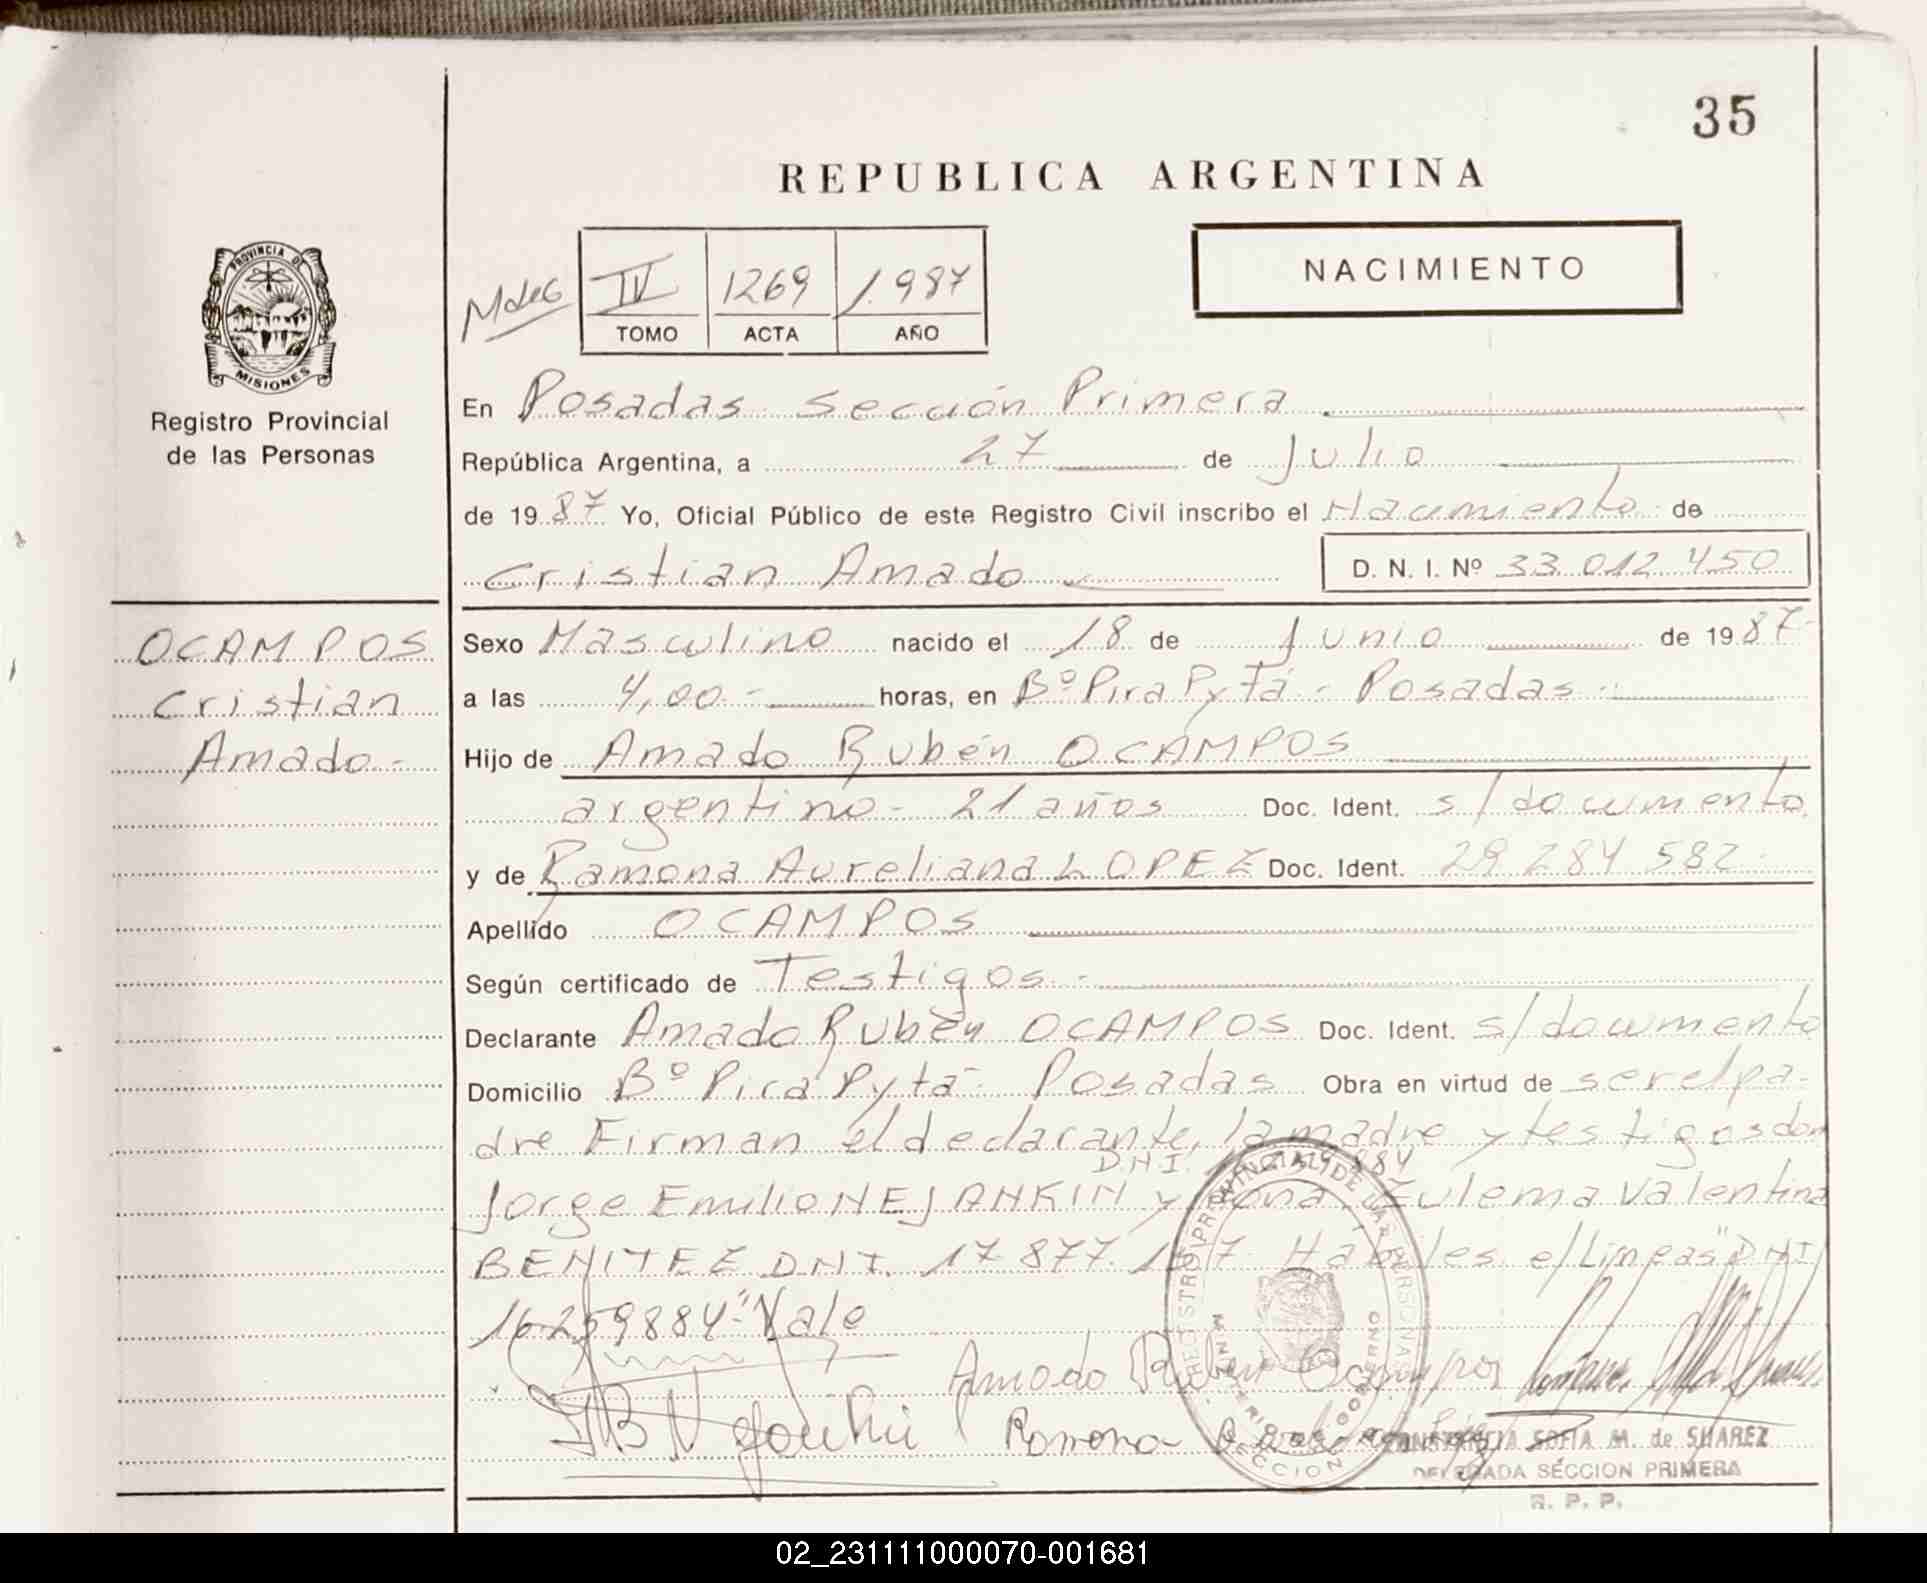 35
REPUBLICA ARGENTINA
IV 1269 1.987
TOMO ACTA AÑO
NACIMIENTO
PROVINCIA DE
MISIONES
Registro Provincial
de las Personas
En Posadas Sección Primera
República Argentina, a 27 de Julio
de 1987 Yo, Oficial Público de este Registro Civil inscribo el Nacimiento de
Cristian Amado D. N. I. Nº 33.012.450
OCAMPOS
Cristian
Amado.-
Sexo Masculino nacido el 18 de Junio de 1987-
a las 4,00.- horas, en Bº Pira Pytá - Posadas.-
Hijo de Amado Rubén OCAMPOS
argentino - 21 años Doc. Ident. s/documento
y de Ramona Aureliana LOPEZ Doc. Ident. 29.284.582.
Apellido OCAMPOS
Según certificado de Testigos.-
Declarante Amado Rubén OCAMPOS Doc. Ident. s/documento
Domicilio Bº Pira Pytá - Posadas Obra en virtud de ser el pa-
dre Firman el declarante, la madre y testigos don
D.N.I.
Jorge Emilio NEJANKIN y Zulema Valentina
BENITEZ D.N.I. 17.877. Habiles e/Lineas "DNI
16259884" Vale
Amado Ruben Ocampos
Ramona
SOFIA M. de SUAREZ
DELEGADA SECCION PRIMERA
R. P. P.
02_231111000070-001681